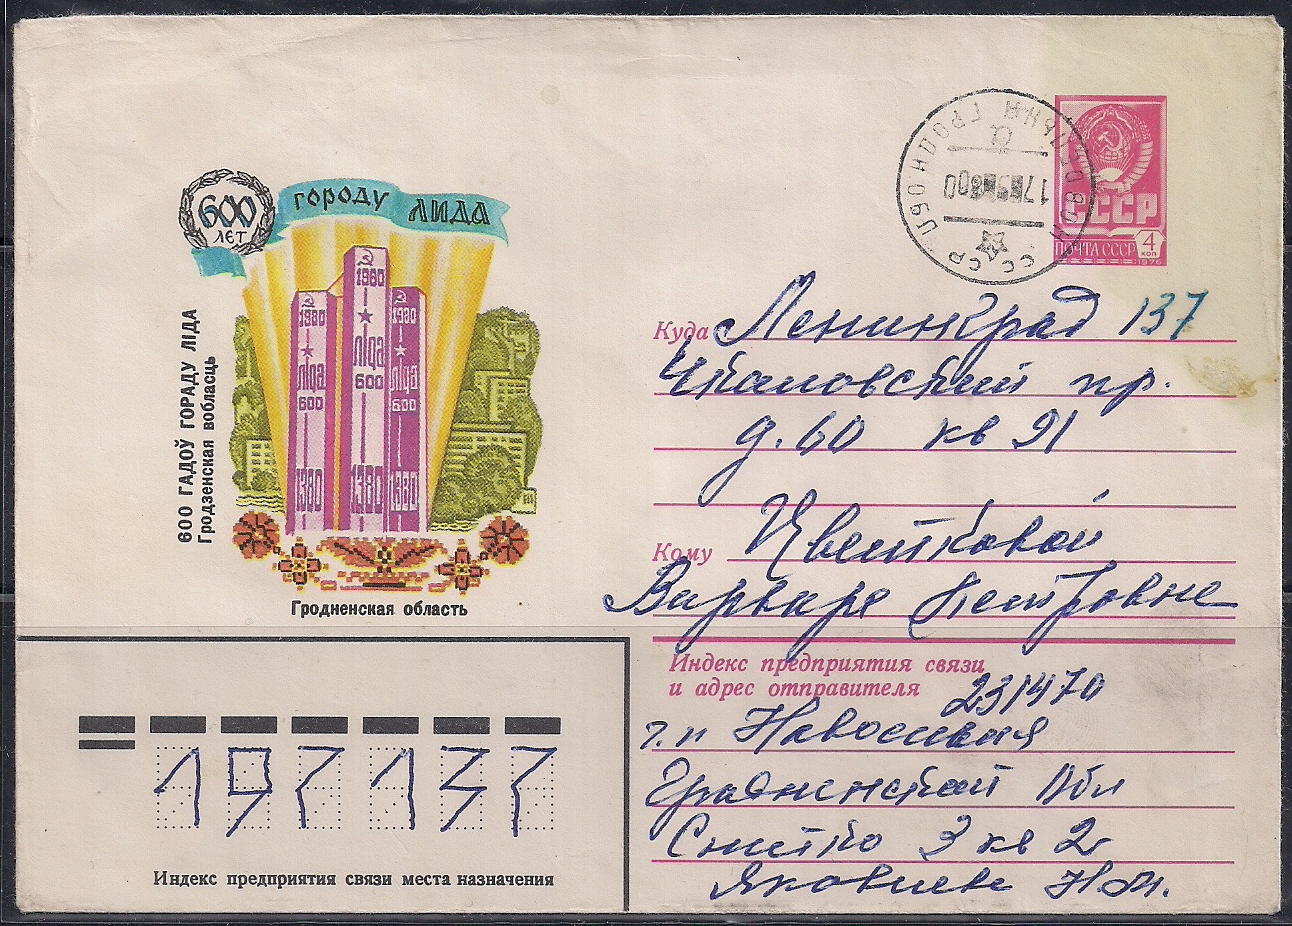 600
ЛЕТ
городу ЛИДА
1980
1980
1980
ліда
ліда
ліда
600
600
600
1380
1380
1380
600 ГАДОЎ ГОРАДУ ЛІДА
Гродзенская вобласць
Гродненская область
СССР
ГРОДН ОБЛ
а
17
800
СССР
ПОЧТА СССР
4
КОП
1976
Куда Ленинград 137
Чкаловский пр.
д. 60 кв 91
Кому Цветковой
Варваре Петровне
Индекс предприятия связи
и адрес отправителя
231470
г.п Новоельня
Гродненской Обл
Снитко 3 кв 2
Яковлева Н.М.
197137
Индекс предприятия связи места назначения